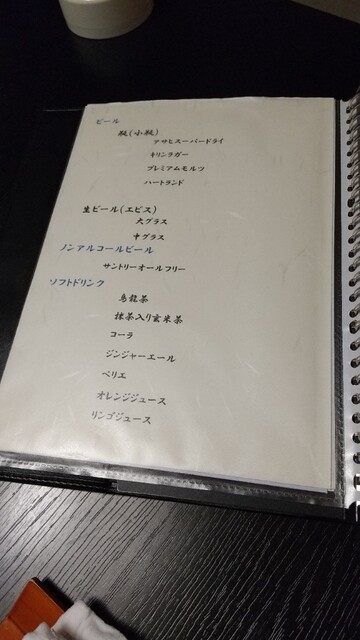 ビール
瓶(小瓶)
アサヒスーパードライ
キリンラガー
プレミアムモルツ
ハートランド
生ビール(エビス)
大グラス
中グラス
ノンアルコールビール
サントリーオールフリー
ソフトドリンク
烏龍茶
抹茶入り玄米茶
コーラ
ジンジャーエール
ペリエ
オレンジジュース
リンゴジュース